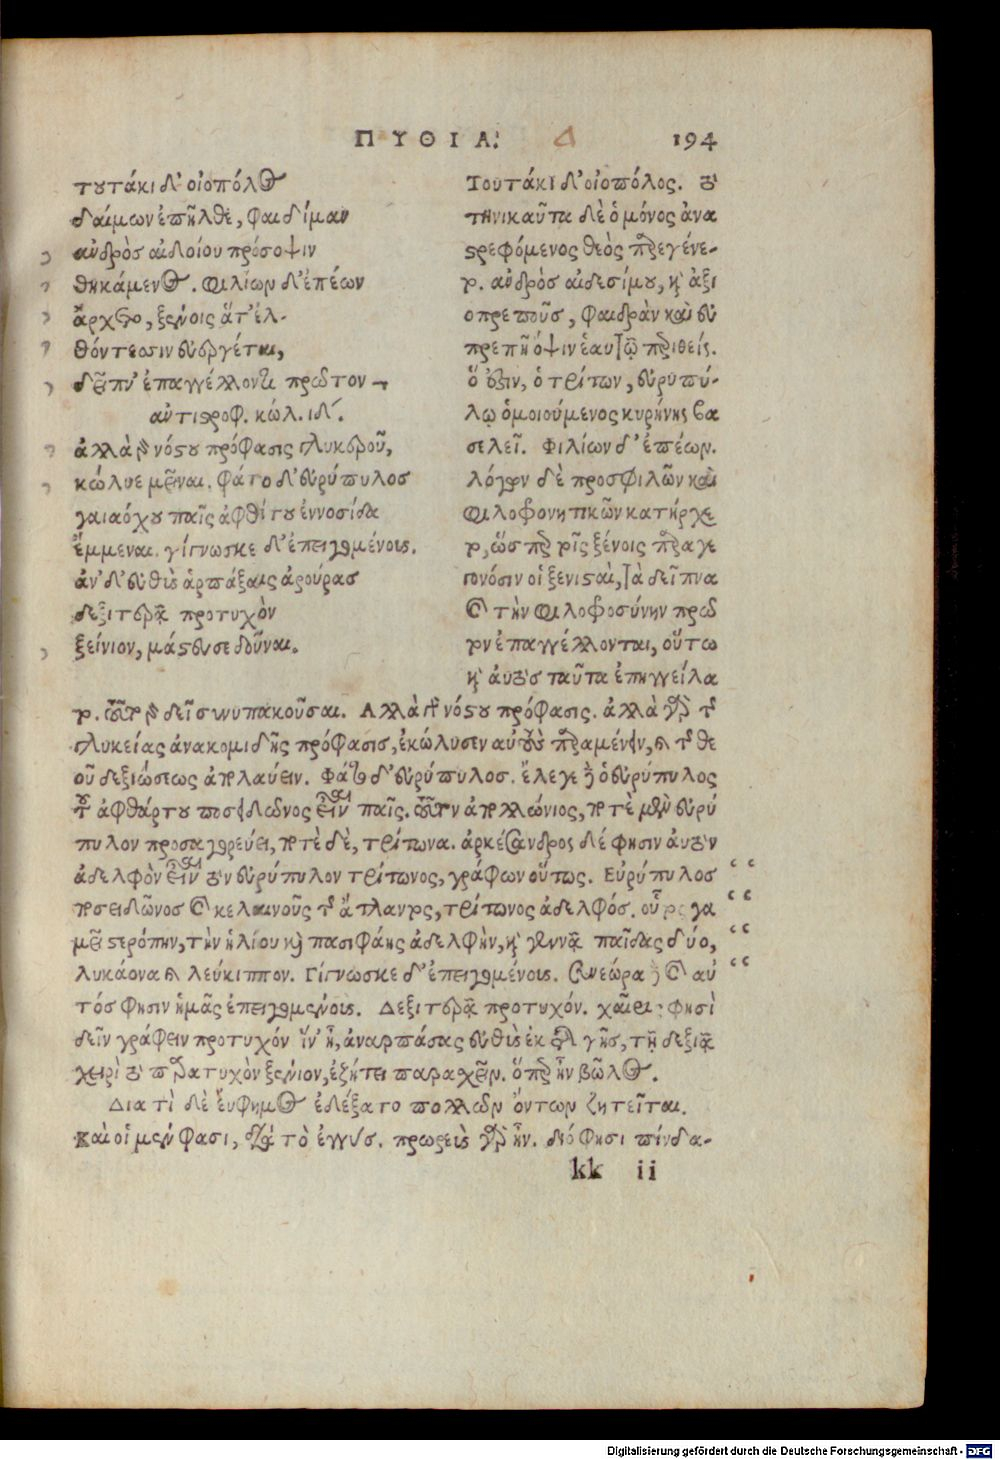 ΠΥΘΙΑ. Δ 194
τουτάκι δ' οἰοπόλος
δαίμων ἐπῆλθε, φαιδίμαν
ἀνδρὸς αἰδοίου πρόσοψιν
θηκάμενος. φιλίων δ' ἐπέων
ἄρχετο, ξείνοις ἅτ' ἐλ-
θόντεσσιν εὐεργέται,
δεῖπν' ἐπαγγέλλοντι πρῶτον
ἀντιστροφ. κώλ. ιδ´.
ἀλλὰ γὰρ νόστου πρόφασις γλυκεροῦ,
κώλυε μεῖναι. φάτο δ' εὐρύπυλος
γαιαόχου παῖς ἀφθίτου ἐννοσίδα
ἔμμεναι. γίγνωσκε δ' ἐπειγομένους.
ἀν' δ' εὐθὺς ἁρπάξαις ἀρούρας
δεξιτερᾷ προτυχὸν
ξείνιον, μάστευσε δοῦναι.
Τουτάκι δ' οἰοπόλος. τὸ
τηνικαῦτα δὲ ὁ μόνος ἀνα
στρεφόμενος θεὸς παρεγένε-
το. ἀνδρὸς αἰδεσίμου, καὶ ἀξι
οπρεποῦς, φαιδρὰν καὶ εὐ
πρεπῆ ὄψιν ἑαυτῷ περιθείς.
ὅ ἐστιν, ὁ τρίτων, εὐρυπύ-
λῳ ὁμοιούμενος κυρήνης βα
σιλεῖ. Φιλίων δ' ἐπέων.
λόγων δὲ προσφιλῶν καὶ
φιλοφρονητικῶν κατήρχε
το, ὥσπερ τοῖς ξένοις παραγε
γονόσιν οἱ ξενισταὶ, τὰ δεῖπνα
καὶ τὴν φιλοφροσύνην πρῶ
τον ἐπαγγέλλονται, οὕτω
καὶ αὐτὸς ταῦτα ἐπηγγείλα
το. τὸ γὰρ δεῖ συνυπακοῦσαι. Αλλὰ γὰρ νόστου πρόφασις. ἀλλὰ γὰρ τῆς
γλυκείας ἀνακομιδῆς πρόφασις, ἐκώλυσεν αὐτοὺς παραμένειν, καὶ τῆς θε
οῦ δεξιώσεως ἀπολαύειν. Φάτο δ' εὐρύπυλος. ἔλεγε δὲ ὁ εὐρύπυλος
τοῦ ἀφθάρτου ποσειδῶνος εἶναι παῖς. τοῦτον ἀπολλώνιος, ποτὲ μὲν εὐρύ
πυλον προσαγορεύει, ποτὲ δὲ, τρίτωνα. ἀρκέσανδρος δέ φησιν αὐτὸν
ἀδελφὸν εἶναι τὸν εὐρύπυλον τρίτωνος, γράφων οὕτως. Εὐρύπυλος
ποσειδῶνος καὶ κελαινοῦς τῆς ἄτλαντος, τρίτωνος ἀδελφός. οὗτος γα
μεῖ στερόπην, τὴν ἡλίου καὶ πασιφάης ἀδελφὴν, καὶ γεννᾷ παῖδας δύο,
λυκάονα καὶ λεύκιππον. Γίγνωσκε δ' ἐπειγομένους. Συνεώρα δὲ καὶ αὐ
τός φησιν ἡμᾶς ἐπειγομένους. Δεξιτερᾷ προτυχόν. χαῖρις φησὶ
δεῖν γράφειν προτυχόν ἵν' ᾖ, ἀναρπάσας εὐθὺς ἐκ τῆς γῆς, τῇ δεξιᾷ
χειρὶ τὸ παρατυχὸν ξένιον, ἐζήτει παρασχεῖν. ὅπερ ἦν βῶλος.
Διατὶ δὲ εὔφημος ἐδέξατο πολλῶν ὄντων ζητεῖται.
Καὶ οἱ μέν φασι, διὰ τὸ ἐγγύς. πρωρεὺς γὰρ ἦν. διό φησι πίνδα-
kk ii
Digitalisierung gefördert durch die Deutsche Forschungsgemeinschaft - DFG